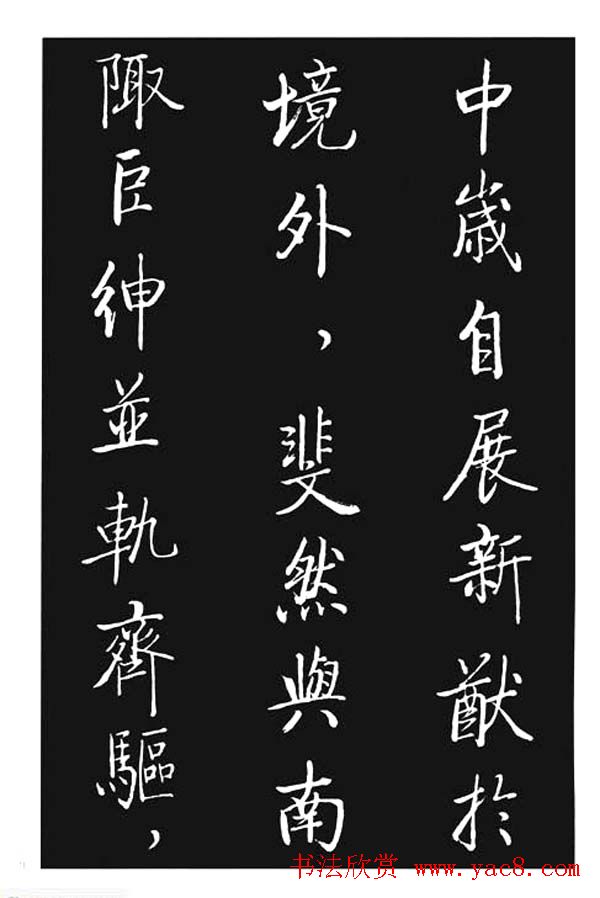 中歲自展新猷於
境外，斐然與南
陬臣紳並軌齊驅，
书法欣赏 www.yac8.com